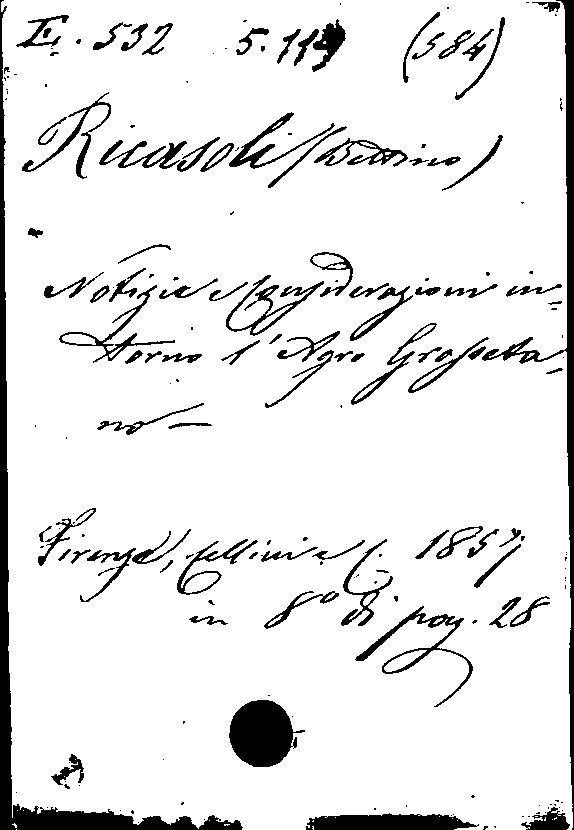 E. 532 5. 119 (584)
Ricasoli (Bettino)
Notizie e Considerazioni in-
torno l'Agro Grosseta-
no —
Firenze, Cellini e C. 1857
in 8º di pag. 28